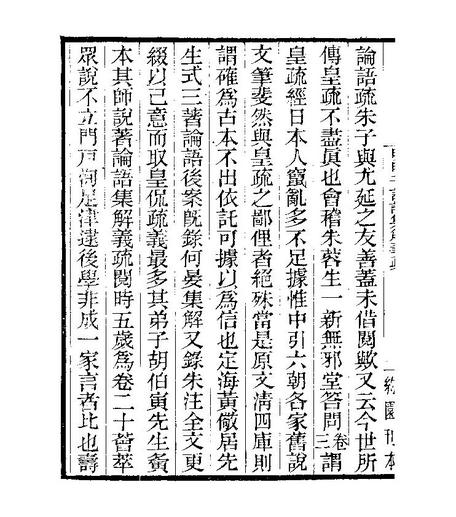 論語疏朱子與尤延之友善蓋未借閱歟又云今世所
傳皇疏不盡眞也會稽朱蓉生一新無邪堂答問卷三謂
皇疏經日本人竄亂多不足據惟中引六朝各家舊說
文筆斐然與皇疏之鄙俚者絕殊當是原文清四庫則
謂確為古本不出依託可據以為信也定海黃儆居先
生式三著論語後案旣錄何晏集解又錄朱注全文更
綴以己意而取皇侃疏義最多其弟子胡伯寅先生夤
本其師說著論語集解義疏閱時五歲為卷二十薈萃
眾說不立門戸洵足津逮後學非成一家言者比也壽
約園刊本